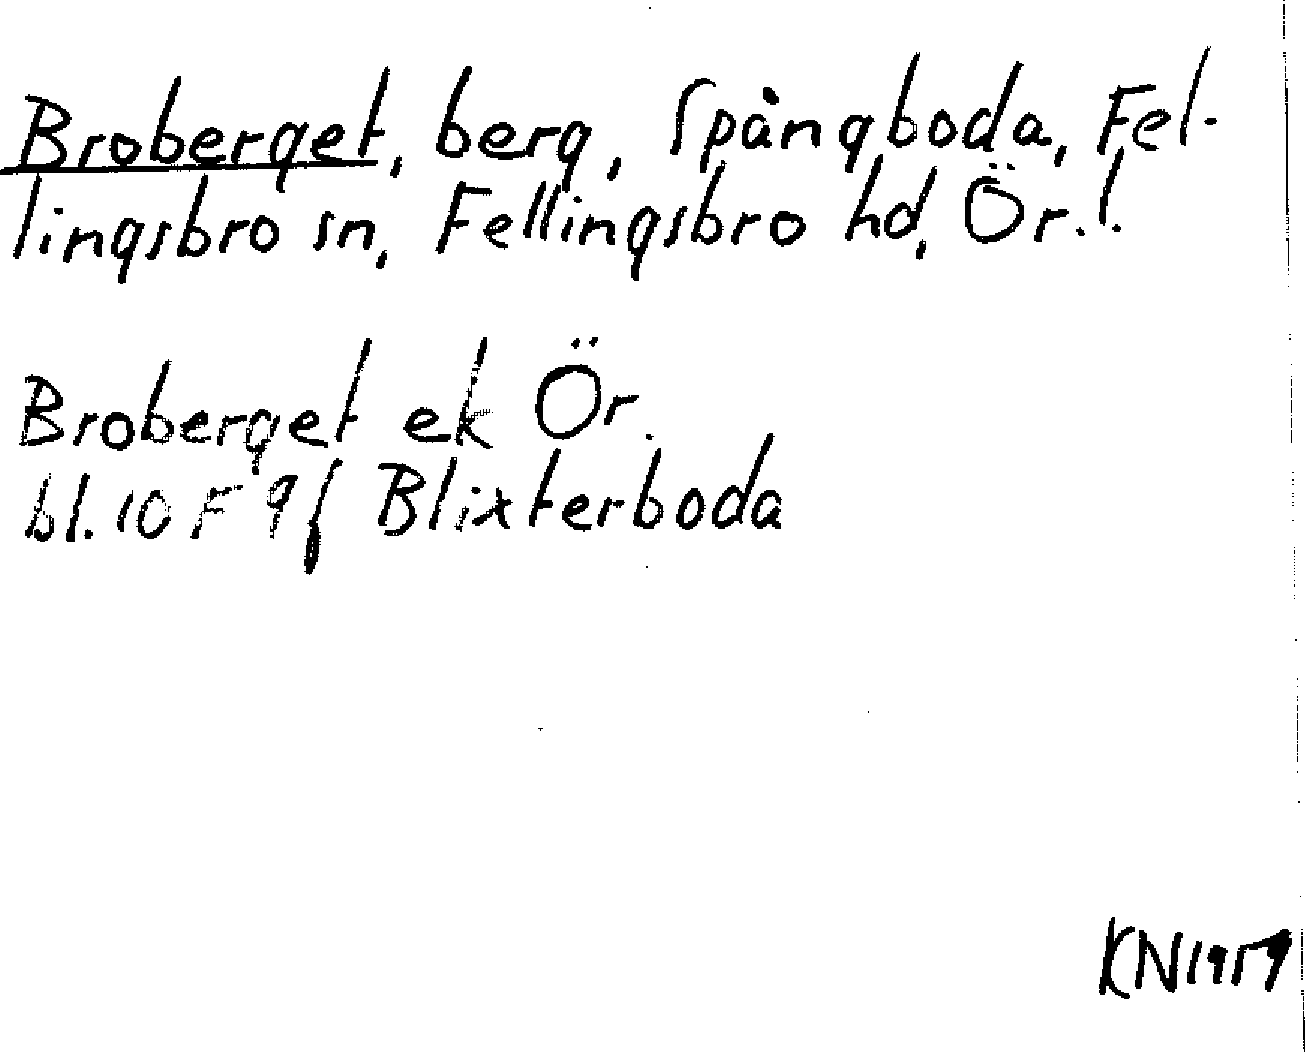 Broberget, berg, Spångboda, Fel-
lingsbro sn, Fellingsbro hd, Ör. l.
Broberget ek Ör.
bl. 10 F 9 f Blixterboda
KN 1959